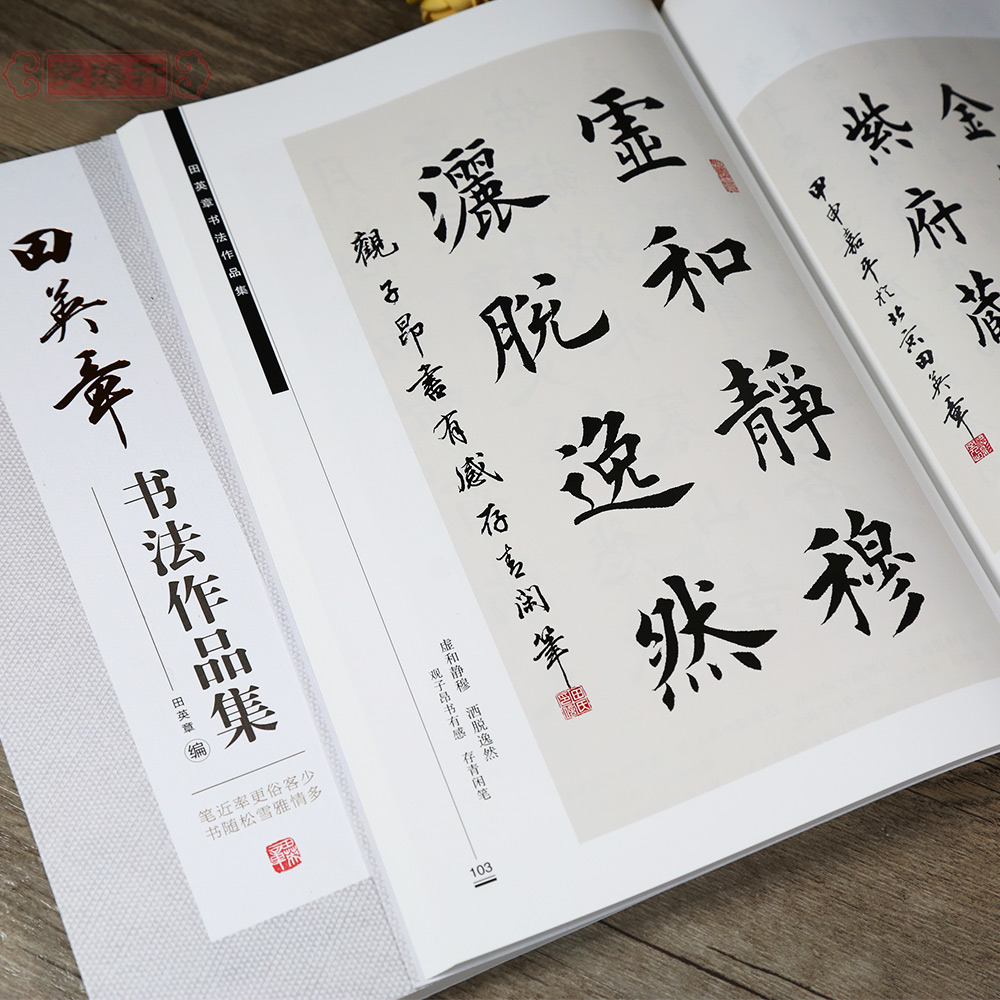 田英章
书法作品集
田英章 编
笔近率更俗客少
书随松雪雅情多
田英章书法作品集
虚和靜穆
灑脱逸然
觀子昂書有感存青闲筆
虚和静穆 洒脱逸然
观子昂书有感 存青闲笔
103
金
紫府藏
甲申嘉平於北京田英章